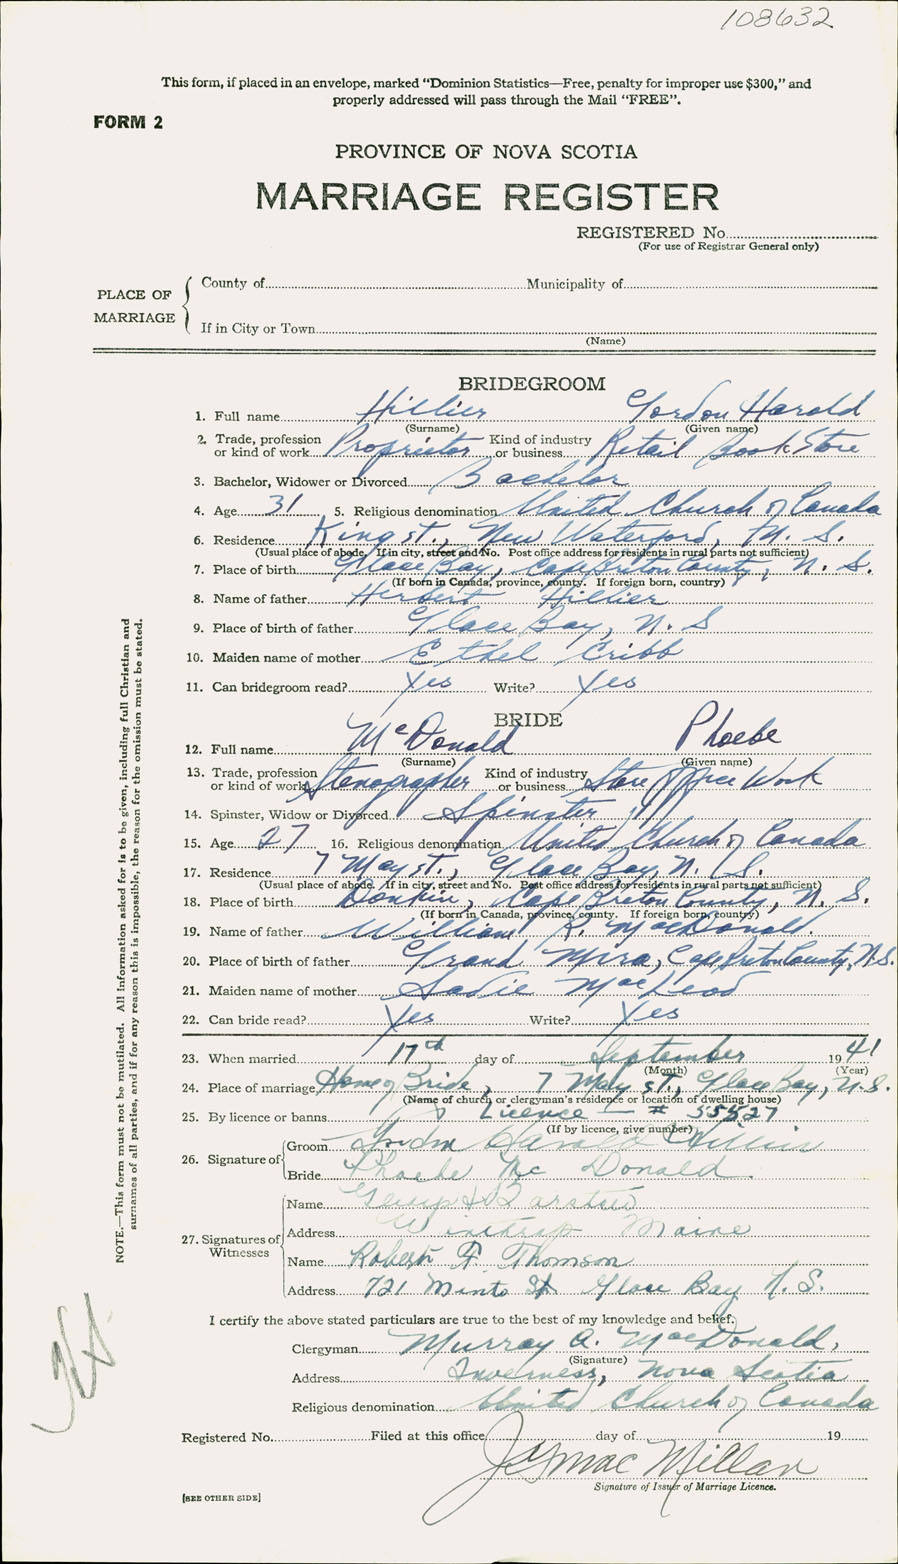 108632
This form, if placed in an envelope, marked “Dominion Statistics—Free, penalty for improper use $300,” and
properly addressed will pass through the Mail “FREE”.
FORM 2
PROVINCE OF NOVA SCOTIA
MARRIAGE REGISTER
REGISTERED No.
(For use of Registrar General only)
PLACE OF MARRIAGE
County of Municipality of
If in City or Town
(Name)
BRIDEGROOM
1. Full name Hillier Gordon Harold
(Surname) (Given name)
2. Trade, profession or kind of work Proprietor Kind of industry or business Retail Book Store
3. Bachelor, Widower or Divorced Bachelor
4. Age 31 5. Religious denomination United Church of Canada
6. Residence King st., New Waterford, N. S.
(Usual place of abode. If in city, street and No. Post office address for residents in rural parts not sufficient)
7. Place of birth Glace Bay, Cape Breton County, N. S.
(If born in Canada, province, county. If foreign born, country)
8. Name of father Herbert Hillier
9. Place of birth of father Glace Bay, N. S
10. Maiden name of mother Ethel Cribb
11. Can bridegroom read? Yes Write? Yes
BRIDE
12. Full name McDonald Phoebe
(Surname) (Given name)
13. Trade, profession or kind of work Stenographer Kind of industry or business Store Office Work
14. Spinster, Widow or Divorced Spinster
15. Age 27 16. Religious denomination United Church of Canada
17. Residence 7 May st., Glace Bay, N. S.
(Usual place of abode. If in city, street and No. Post office address for residents in rural parts not sufficient)
18. Place of birth Donkin, Cape Breton County, N. S.
(If born in Canada, province, county. If foreign born, country)
19. Name of father William R. MacDonald.
20. Place of birth of father Grand Mira, Cape Breton County, N.S.
21. Maiden name of mother Sadie MacLeod
22. Can bride read? Yes Write? Yes
23. When married 17th day of September 1941
(Month) (Year)
24. Place of marriage Home of Bride, 7 May st., Glace Bay, N.S.
(Name of church or clergyman's residence or location of dwelling house)
25. By licence or banns Licence — # 55527
(If by licence, give number)
26. Signature of
Groom Gordon Harold Hillier
Bride Phoebe Mc Donald
27. Signatures of Witnesses
Name Barstow
Address Winthrop Maine
Name Robert F. Thomson
Address 721 Minto St Glace Bay N. S.
I certify the above stated particulars are true to the best of my knowledge and belief.
Clergyman Murray A. MacDonald,
(Signature)
Address Inverness, Nova Scotia
Religious denomination United Church of Canada
Registered No. Filed at this office day of 19
MacMillan
Signature of Issuer of Marriage Licence.
[SEE OTHER SIDE]
NOTE.—This form must not be mutilated. All information asked for is to be given, including full Christian and
surnames of all parties, and if for any reason this is impossible, the reason for the omission must be stated.